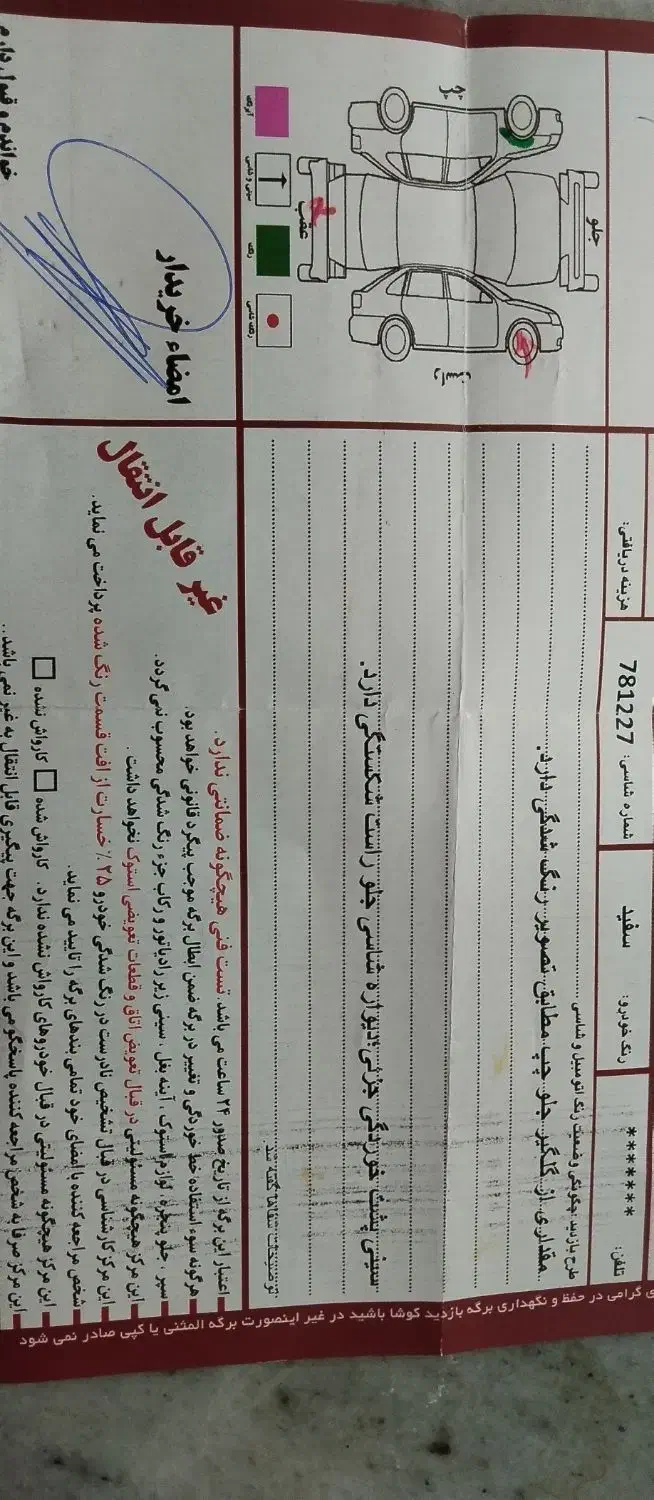 هزینه دریافتی:
شماره شاسی: 781227
رنگ خودرو: سفید
تلفن: *******
طرح بازدید چگونگی وضعیت رنگ اتومبیل و شاسی
مقداری از گلگیر جلو چپ مطابق تصویر رنگ شدگی دارد.
سینی پشت خوردگی جزئی دیواره شاسی جلو راست شکستگی دارد.
توضیحات شفاها گفته شد
جلو
عقب
چپ
راست
رنگ
امضاء خریدار
خواندم و قبول دارم
غیر قابل انتقال
اعتبار این برگه از تاریخ صدور ۲۴ ساعت می باشد. تست فنی هیچگونه ضمانتی ندارد.
هرگونه سوء استفاده خط خوردگی و تغییر در برگه ضمن ابطال برگه موجب پیگرد قانونی خواهد بود.
سپر ، جلو پنجره ، لوازم استوک ، آینه بغل ، سینی زیر رادیاتور و رکاب جزء رنگ شدگی محسوب نمی گردد.
این مرکز هیچگونه مسئولیتی در قبال تعویض اتاق و قطعات تعویضی استوک نخواهد داشت.
این مرکز کارشناسی در قبال تشخیص نادرست در رنگ شدگی خودرو ۲۵٪ خسارت از افت قسمت رنگ شده پرداخت می نماید.
شخص مراجعه کننده با امضای خود تمامی بندهای برگه را تایید می نماید.
این مرکز هیچگونه مسئولیتی در قبال خودروهای کارواش نشده ندارد. کارواش شده کارواش نشده
این مرکز صرفا به شخص مراجعه کننده پاسخگو می باشد و این برگه جهت پیگیری قابل انتقال به غیر نمی باشد.
ی گرامی در حفظ و نگهداری برگه بازدید کوشا باشید در غیر اینصورت برگه المثنی یا کپی صادر نمی شود